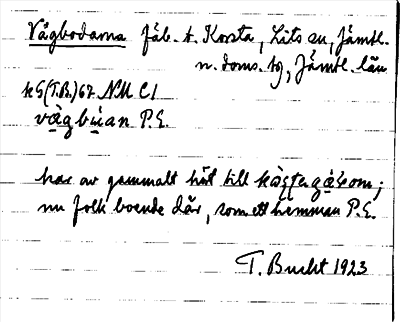 Vågbodarna fäb. t. Korsta, Lits sn, Jämtl.
n. doms. tg, Jämtl. län
kS(T.B.)67. NM C1
vàgbúan P.E.
har av gammalt hört till
nu folk boende där, som ett hemman P.E.
T. Bucht 1923